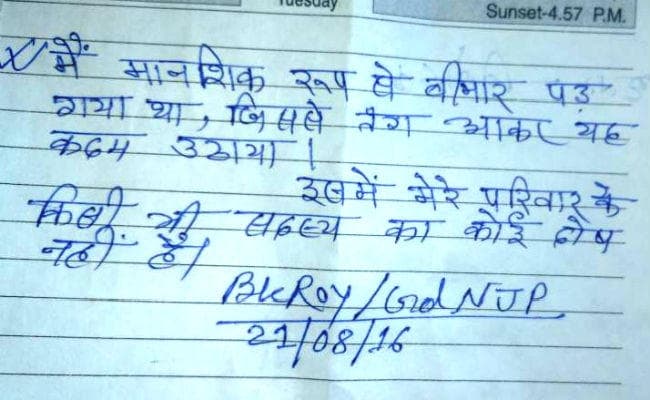 Tuesday
Sunset-4.57 P.M.
मैं मानशिक रूप से बीमार पड़
गया था, जिससे तंग आकर यह
कदम उठाया।
इसमें मेरे परिवार के
किसी भी सदस्य का कोई दोष
नहीं है।
BKRoy/Grd NJP
21/08/16